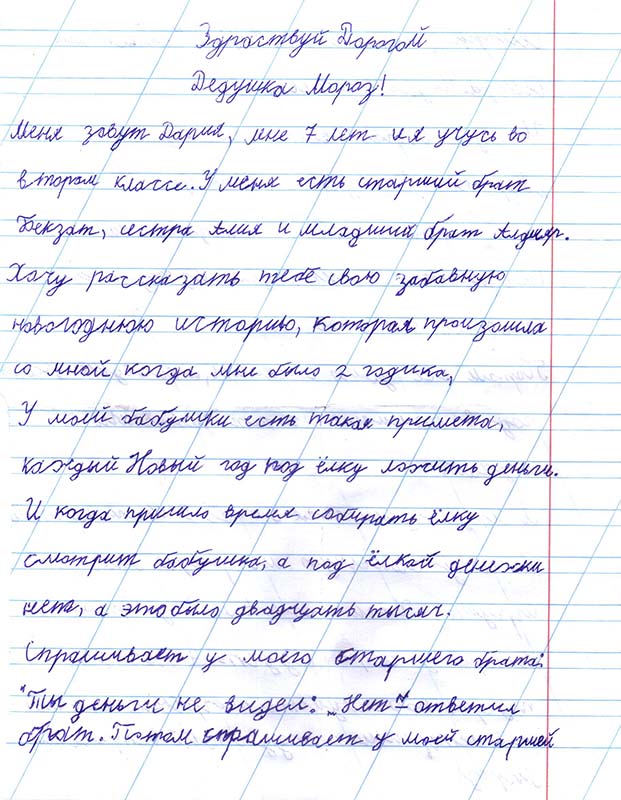 Здраствуй Дорогой
Дедушка Мороз!
Меня зовут Дария, мне 7 лет и я учусь во
втором классе. У меня есть старший брат
Бекзат, сестра Алия и младший брат Алдияр.
Хочу рассказать тебе свою забавную
новогоднюю историю, которая произошла
со мной когда, мне было 2 годика,
У моей бабушки есть такая примета,
каждый Новый год под ёлку ложить деньги.
И когда пришло время собирать ёлку
смотрит бабушка, а под ёлкой денежки
нет, а это было двадцать тысяч.
Спрашивает у моего старшего брата:
"Ты деньги не видел: „Нет" ответил
брат. Потом спрашивает у моей старшей